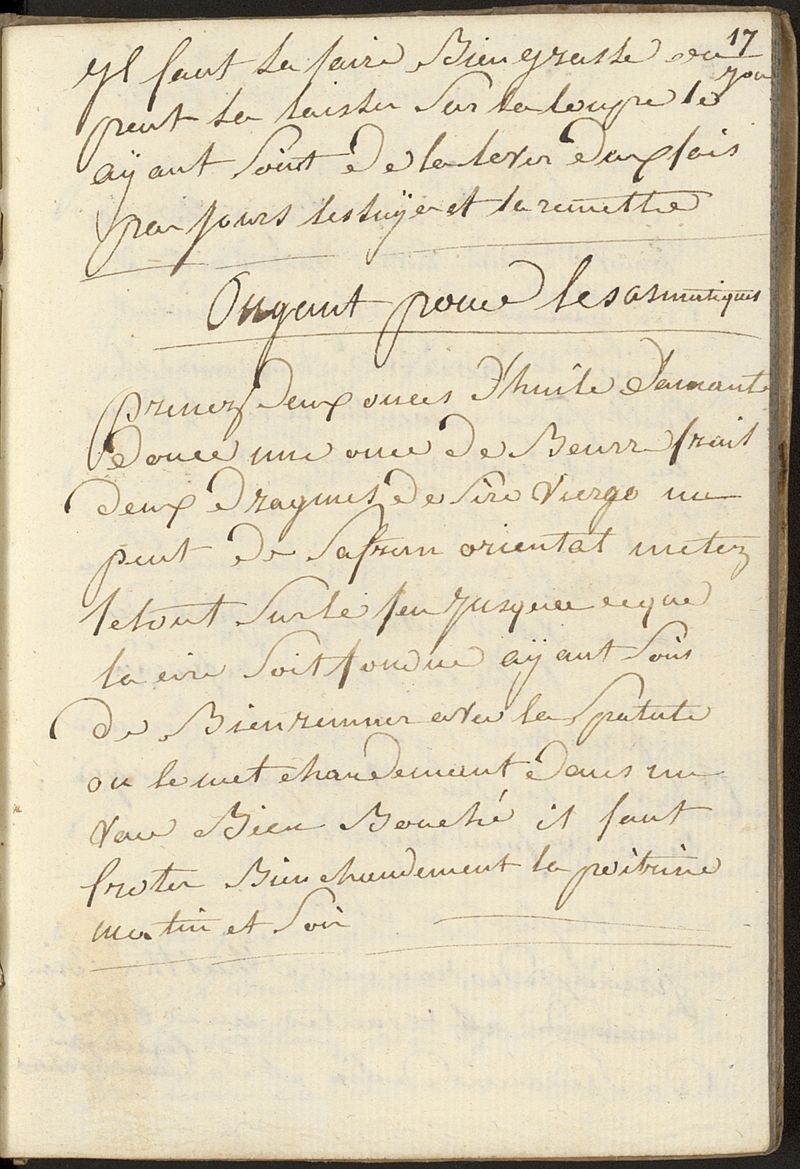 17
yl faut la faire Bien grasse on
peut la laisser Sur la loupe le jour
aÿant Soint de la lever deux fois
par jours lessuÿer et la remettre
Ongant pour les asmatiques
prenez deux onces d'huile damante
douce une once de Beurre frait
deux dragmes de Sire vierge un
peut de Safran oriental metez
letout Surle feu jusquee ceque
la cire Soit fondue aÿant Soin
de Bien remuer avec la Spatule
on le met chaudemant dans un
vau Bien Bouché it faut
froter Bien chaudement la poitrine
matin et Soir